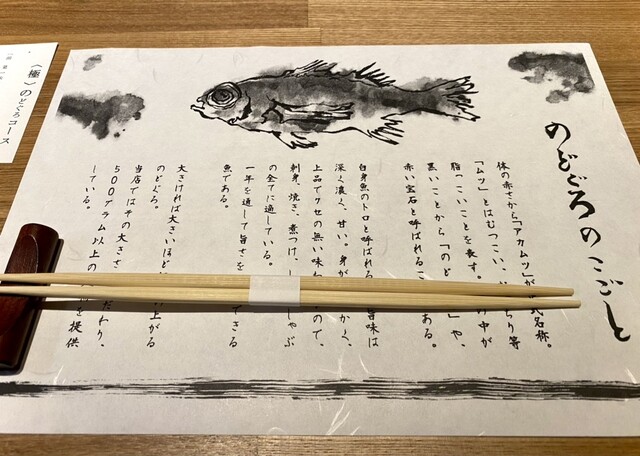 のどぐろのこごと
体の赤さから「アカムツ」が式名称。
「ムツ」とはむつこい、ちり等
脂「こい」ことを表す。の中が
黒いことから「のどや、
赤い宝石と呼ばれるこある。
白身魚のトロと呼ばれる旨味は
深く濃く、甘い。身がかく、
上品でクセの無い味わので、
刺身、焼き、煮つけ、ししゃぶ
の全てに適している。
一年を通して旨さをできる
魚である。
大きければ大きいほど上がる
のどぐろ。
当店ではその大きさだわり、
500グラム以上のを提供
している。
〈極〉のどぐろコース